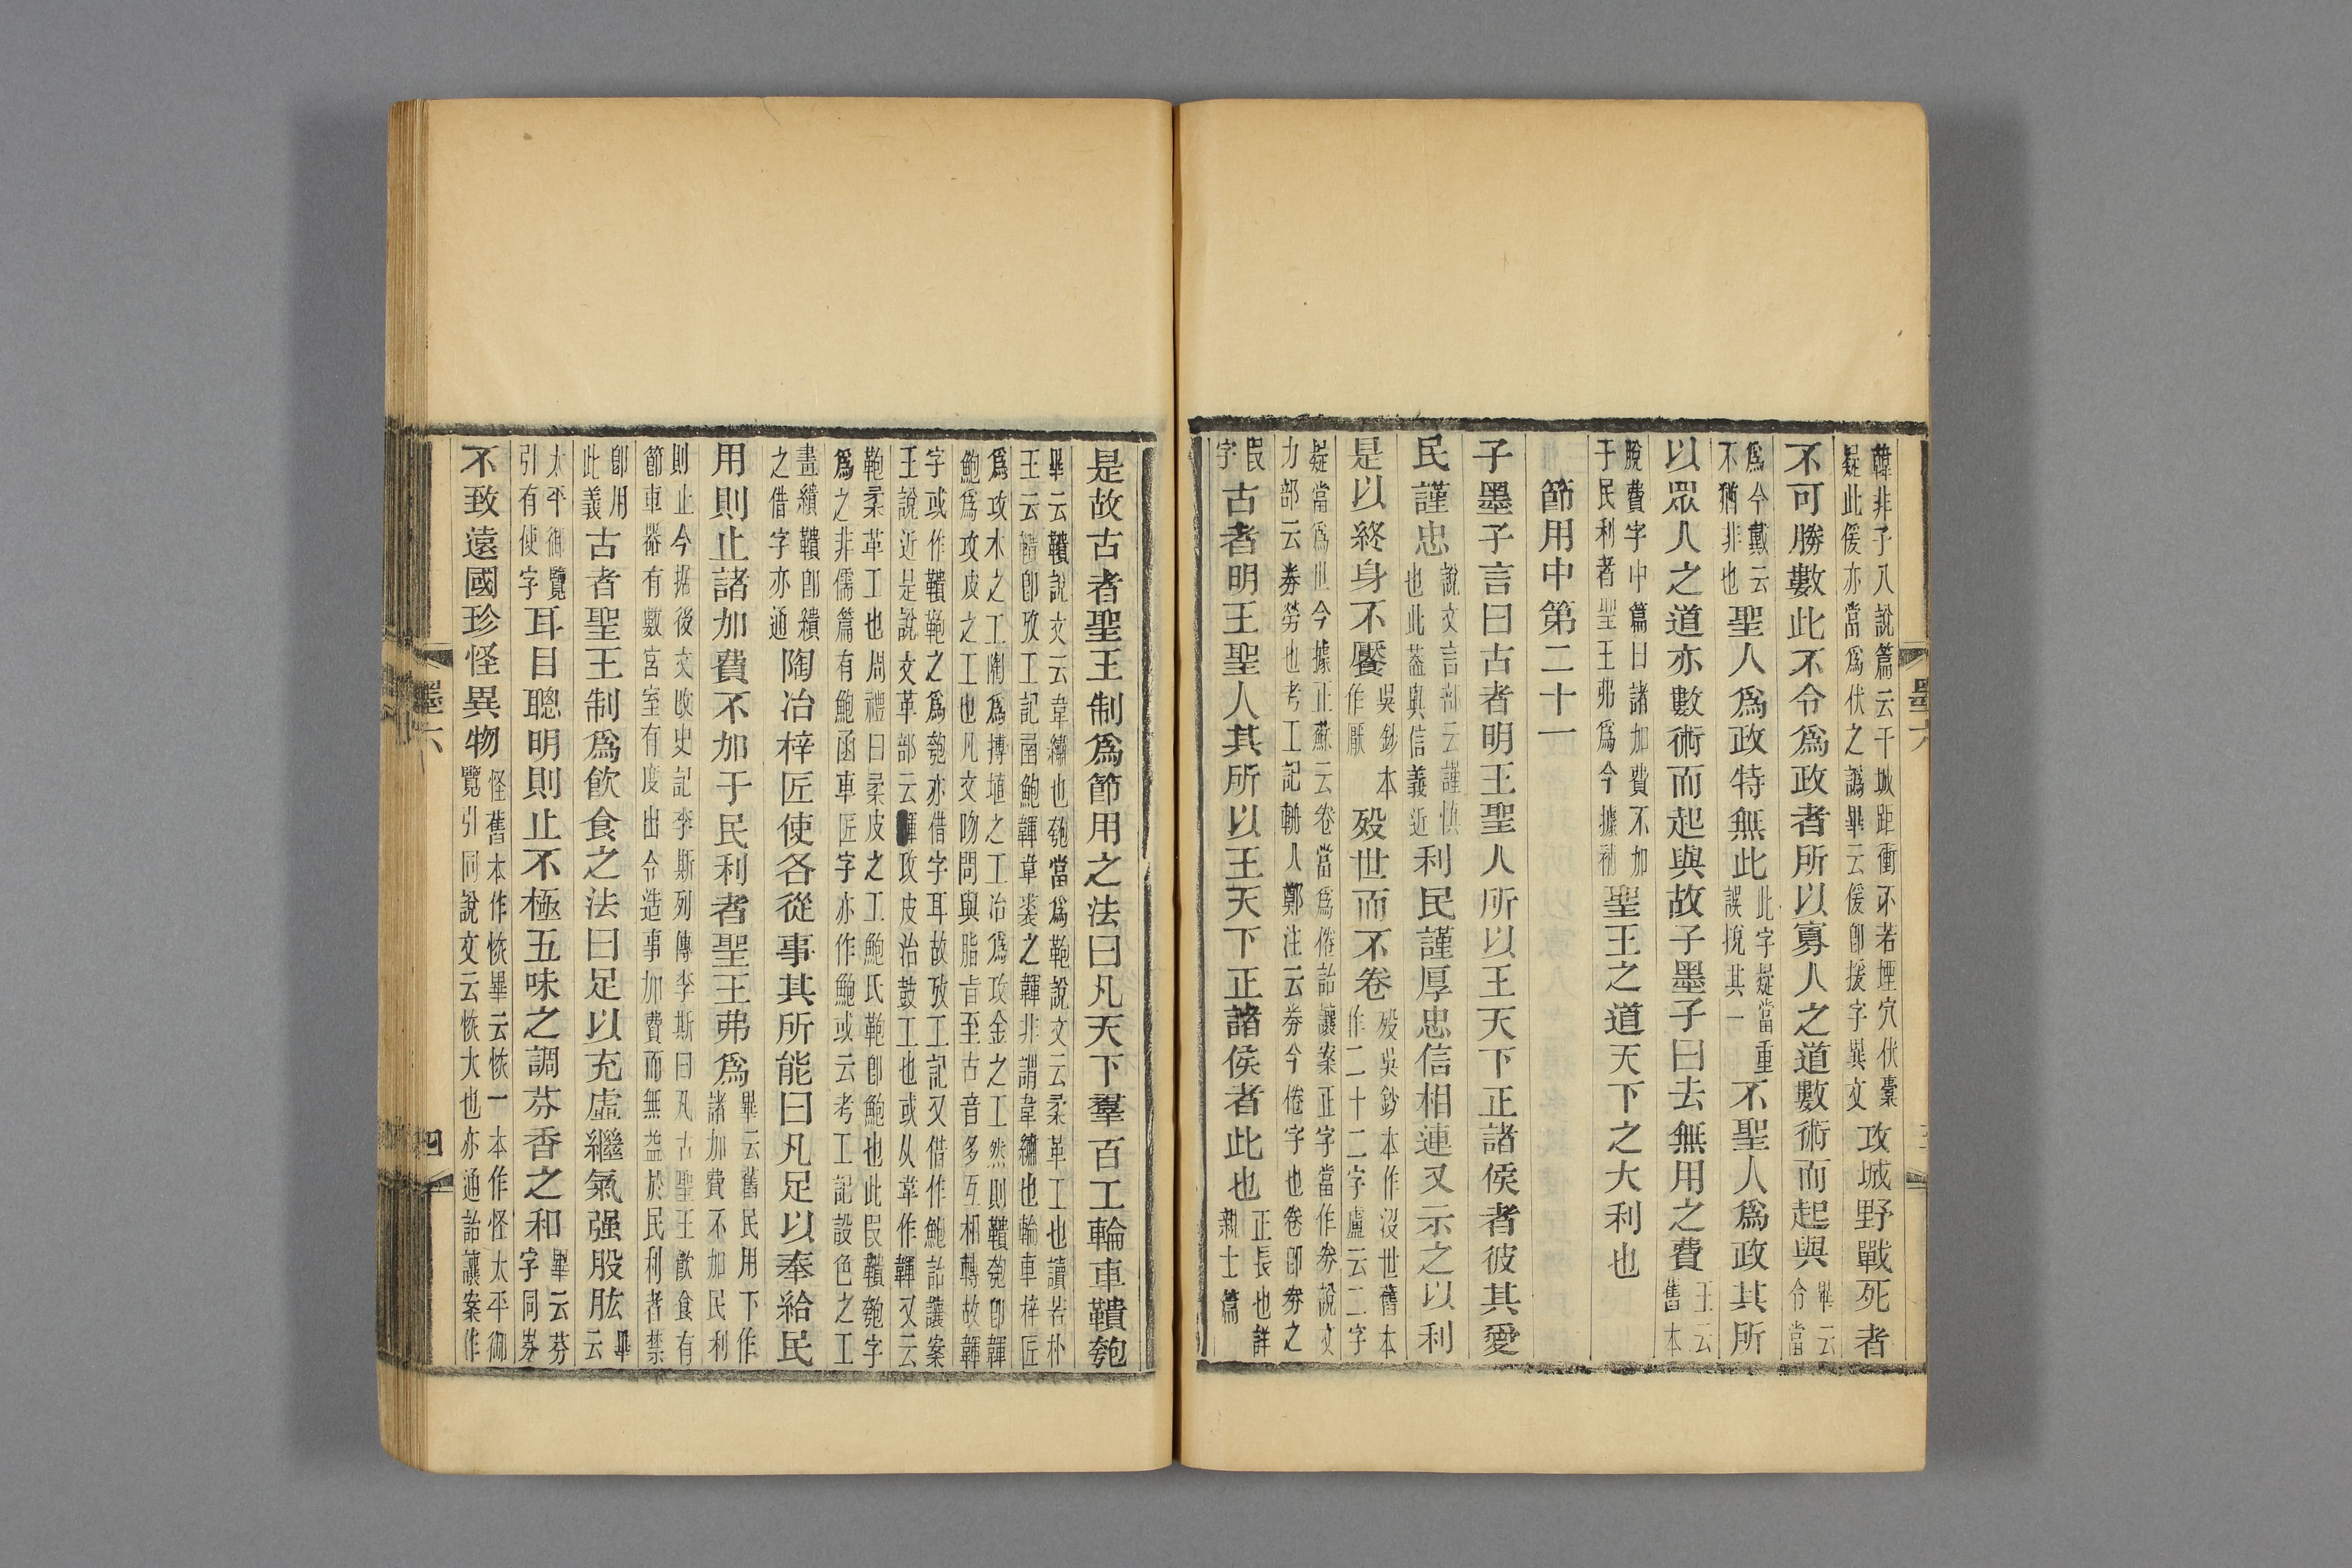 韓非子八說篇云干城距衝不若堙穴伏櫜
疑此偄亦當爲伏之譌畢云偄卽援字異文
攻城野戰死者
不可勝數此不令爲政者所以寡人之道數術而起與
畢云
令當
爲今戴云
不猶非也
聖人爲政特無此
此字疑當重
誤挩其一
不聖人爲政其所
以眾人之道亦數術而起與故子墨子曰去無用之費
王云
舊本
脫費字中篇曰諸加費不加
于民利者聖王弗爲今據補
聖王之道天下之大利也
節用中第二十一
子墨子言曰古者明王聖人所以王天下正諸侯者彼其愛
民謹忠
說文言部云謹愼
也此蓋與信義近
利民謹厚忠信相連又示之以利
是以終身不饜
吳鈔本
作厭
歿世而不卷
歿吳鈔本作沒世舊本
作二十二字盧云二字
疑當爲世今據正蘇云卷當爲倦詒讓案正字當作劵說文
力部云劵勞也考工記輈人鄭注云劵今倦字也卷卽劵之
叚
字
古者明王聖人其所以王天下正諸侯者此也
正長也詳
親士篇
墨六
是故古者聖王制爲節用之法曰凡天下羣百工輪車鞼匏
畢云鞼說文云韋繡也匏當爲鞄說文云柔革工也讀若朴
王云鞼卽攷工記函鮑韗韋裘之韗非謂韋繡也輪車梓匠
爲攻木之工陶爲摶埴之工冶爲攻金之工然則鞼匏卽韗
鮑爲攻皮之工也凡文吻問與脂旨至古音多互相轉故韗
字或作鞼鞄之爲匏亦借字耳故攷工記又借作鮑詒讓案
王說近是說文革部云韗攻皮治鼓工也或从韋作韗又云
鞄柔革工也周禮曰柔皮之工鮑氏鞄卽鮑也此叚鞼匏字
爲之非儒篇有鮑函車匠字亦作鮑或云考工記設色之工
畫繢鞼卽繢
之借字亦通
陶冶梓匠使各從事其所能曰凡足以奉給民
用則止諸加費不加于民利者聖王弗爲
畢云舊民用下作
諸加費不加民利
則止今据後文改史記李斯列傳李斯曰凡古聖王飮食有
節車器有數宮室有度出令造事加費而無益於民利者禁
卽用
此義
古者聖王制爲飮食之法曰足以充虛繼氣强股肱
畢
云
太平御覽
引有使字
耳目聰明則止不極五味之調芬香之和
畢云芬
字同芬
不致遠國珍怪異物
怪舊本作恢畢云恢一本作怪太平御
覽引同說文云恢大也亦通詒讓案作
墨六
四